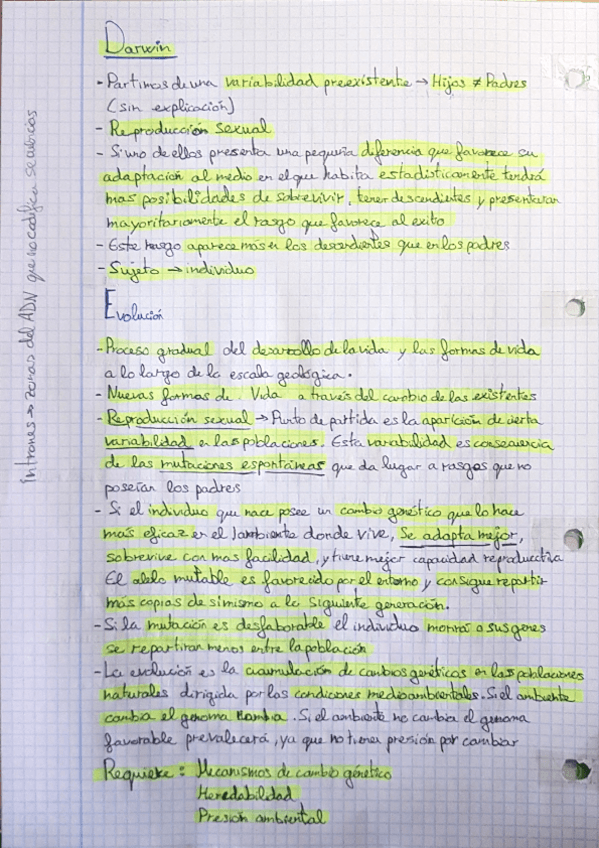 Darwin
- Partimos de una variabilidad preexistente → Hijos ≠ Padres
(sin explicación)
- Reproducción sexual
- Si uno de ellos presenta una pequeña diferencia que favorece su
adaptación al medio en el que habita estadísticamente tendrá
mas posibilidades de sobrevivir, tener descendientes y presentaran
mayoritariamente el rasgo que favorece al exito
- Este rasgo aparece más en los descendientes que en los padres
- Sujeto → individuo
Evolución
- Proceso gradual del desarrollo de la vida y las formas de vida
a lo largo de la escala geológica.
- Nuevas formas de Vida a través del cambio de las existentes
- Reproducción sexual → Punto de partida es la aparición de cierta
variabilidad en las poblaciones. Esta varabilidad es consecuencia
de las mutaciones espontáneas que da lugar a rasgos que no
poseían los padres
- Si el individuo que nace posee un cambio genético que lo hace
más eficaz en el ambiente donde vive, se adapta mejor,
sobrevive con mas facilidad, y tiene mejor capacidad reproductiva
El alelo mutable es favorecido por el entorno y consigue repartir
más copias de si mismo a la siguiente generación.
- Si la mutación es desfaborable el individuo morirá o sus genes
se repartiran menos entre la población
- La evolución es la acumulación de cambios genéticos en las poblaciones
naturales dirigida por las condiciones medioambientales. Si el ambiente
cambia el genoma cambia. Si el ambiente no cambia el genoma
favorable prevalecerá, ya que no tienen presión por cambiar
Requiere: Mecanismos de cambio génetico
Heredabilidad
Presión ambiental
intrones → zonas del ADN que no codifica